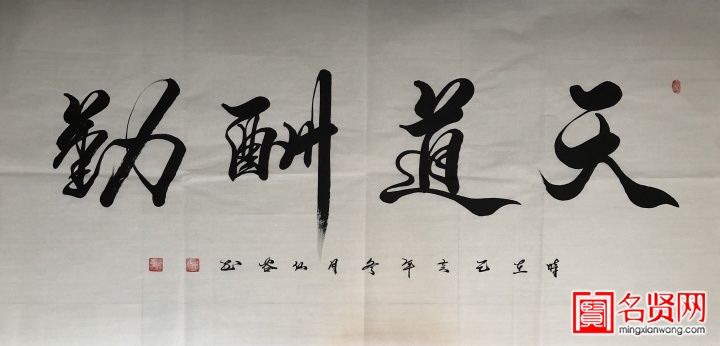 天道酬勤
时在己亥年冬月仙谷书
名贤网
mingxianwang.com